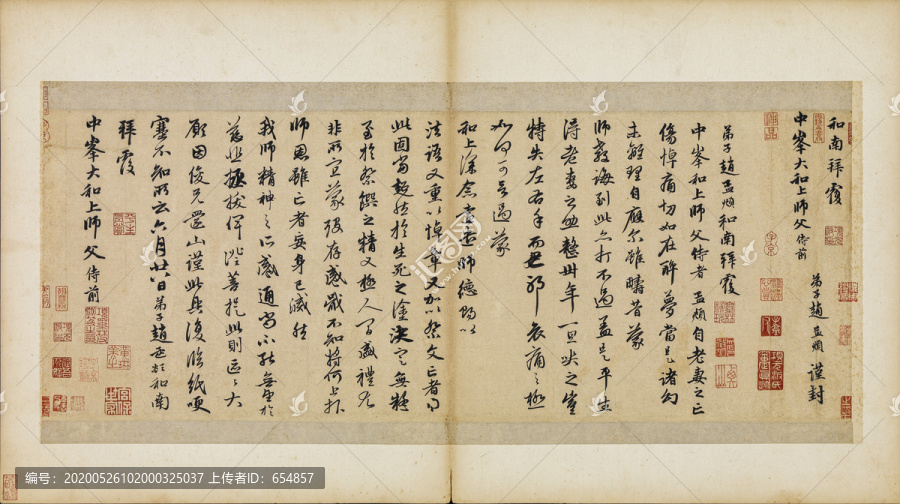 和南拜覆
中峯大和上師父侍前
弟子趙孟頫謹封
弟子趙孟頫和南拜覆
中峯和上師父侍者孟頫自老妻之亡
傷悼痛切如在醉夢當是諸幻
未離理自應尔雖疇昔蒙
師教誨到此亦打不過蓋是平生
得老妻之助整卅年一旦哭之豈
特失左右手而已耶哀痛之極
如何可言過蒙
和上深念遠遣師德賜以
法語又重以悼章又加以祭文亡者得
此固當超然於生死之塗決定無疑
至於祭饌之精又極人間盛禮尤
非所宜蒙殁存感戢不知將何上報
師恩雖亡者妄身已滅然
我師精神之所感通尚不能無望於
慈悲拯拔俾證菩提此則區區大
願因俊兄還山謹此具復臨紙哽
塞不知所云六月廿八日弟子趙孟頫和南
拜覆
中峯大和上師父侍前
编号:20200526102000325037 上传者ID:654857